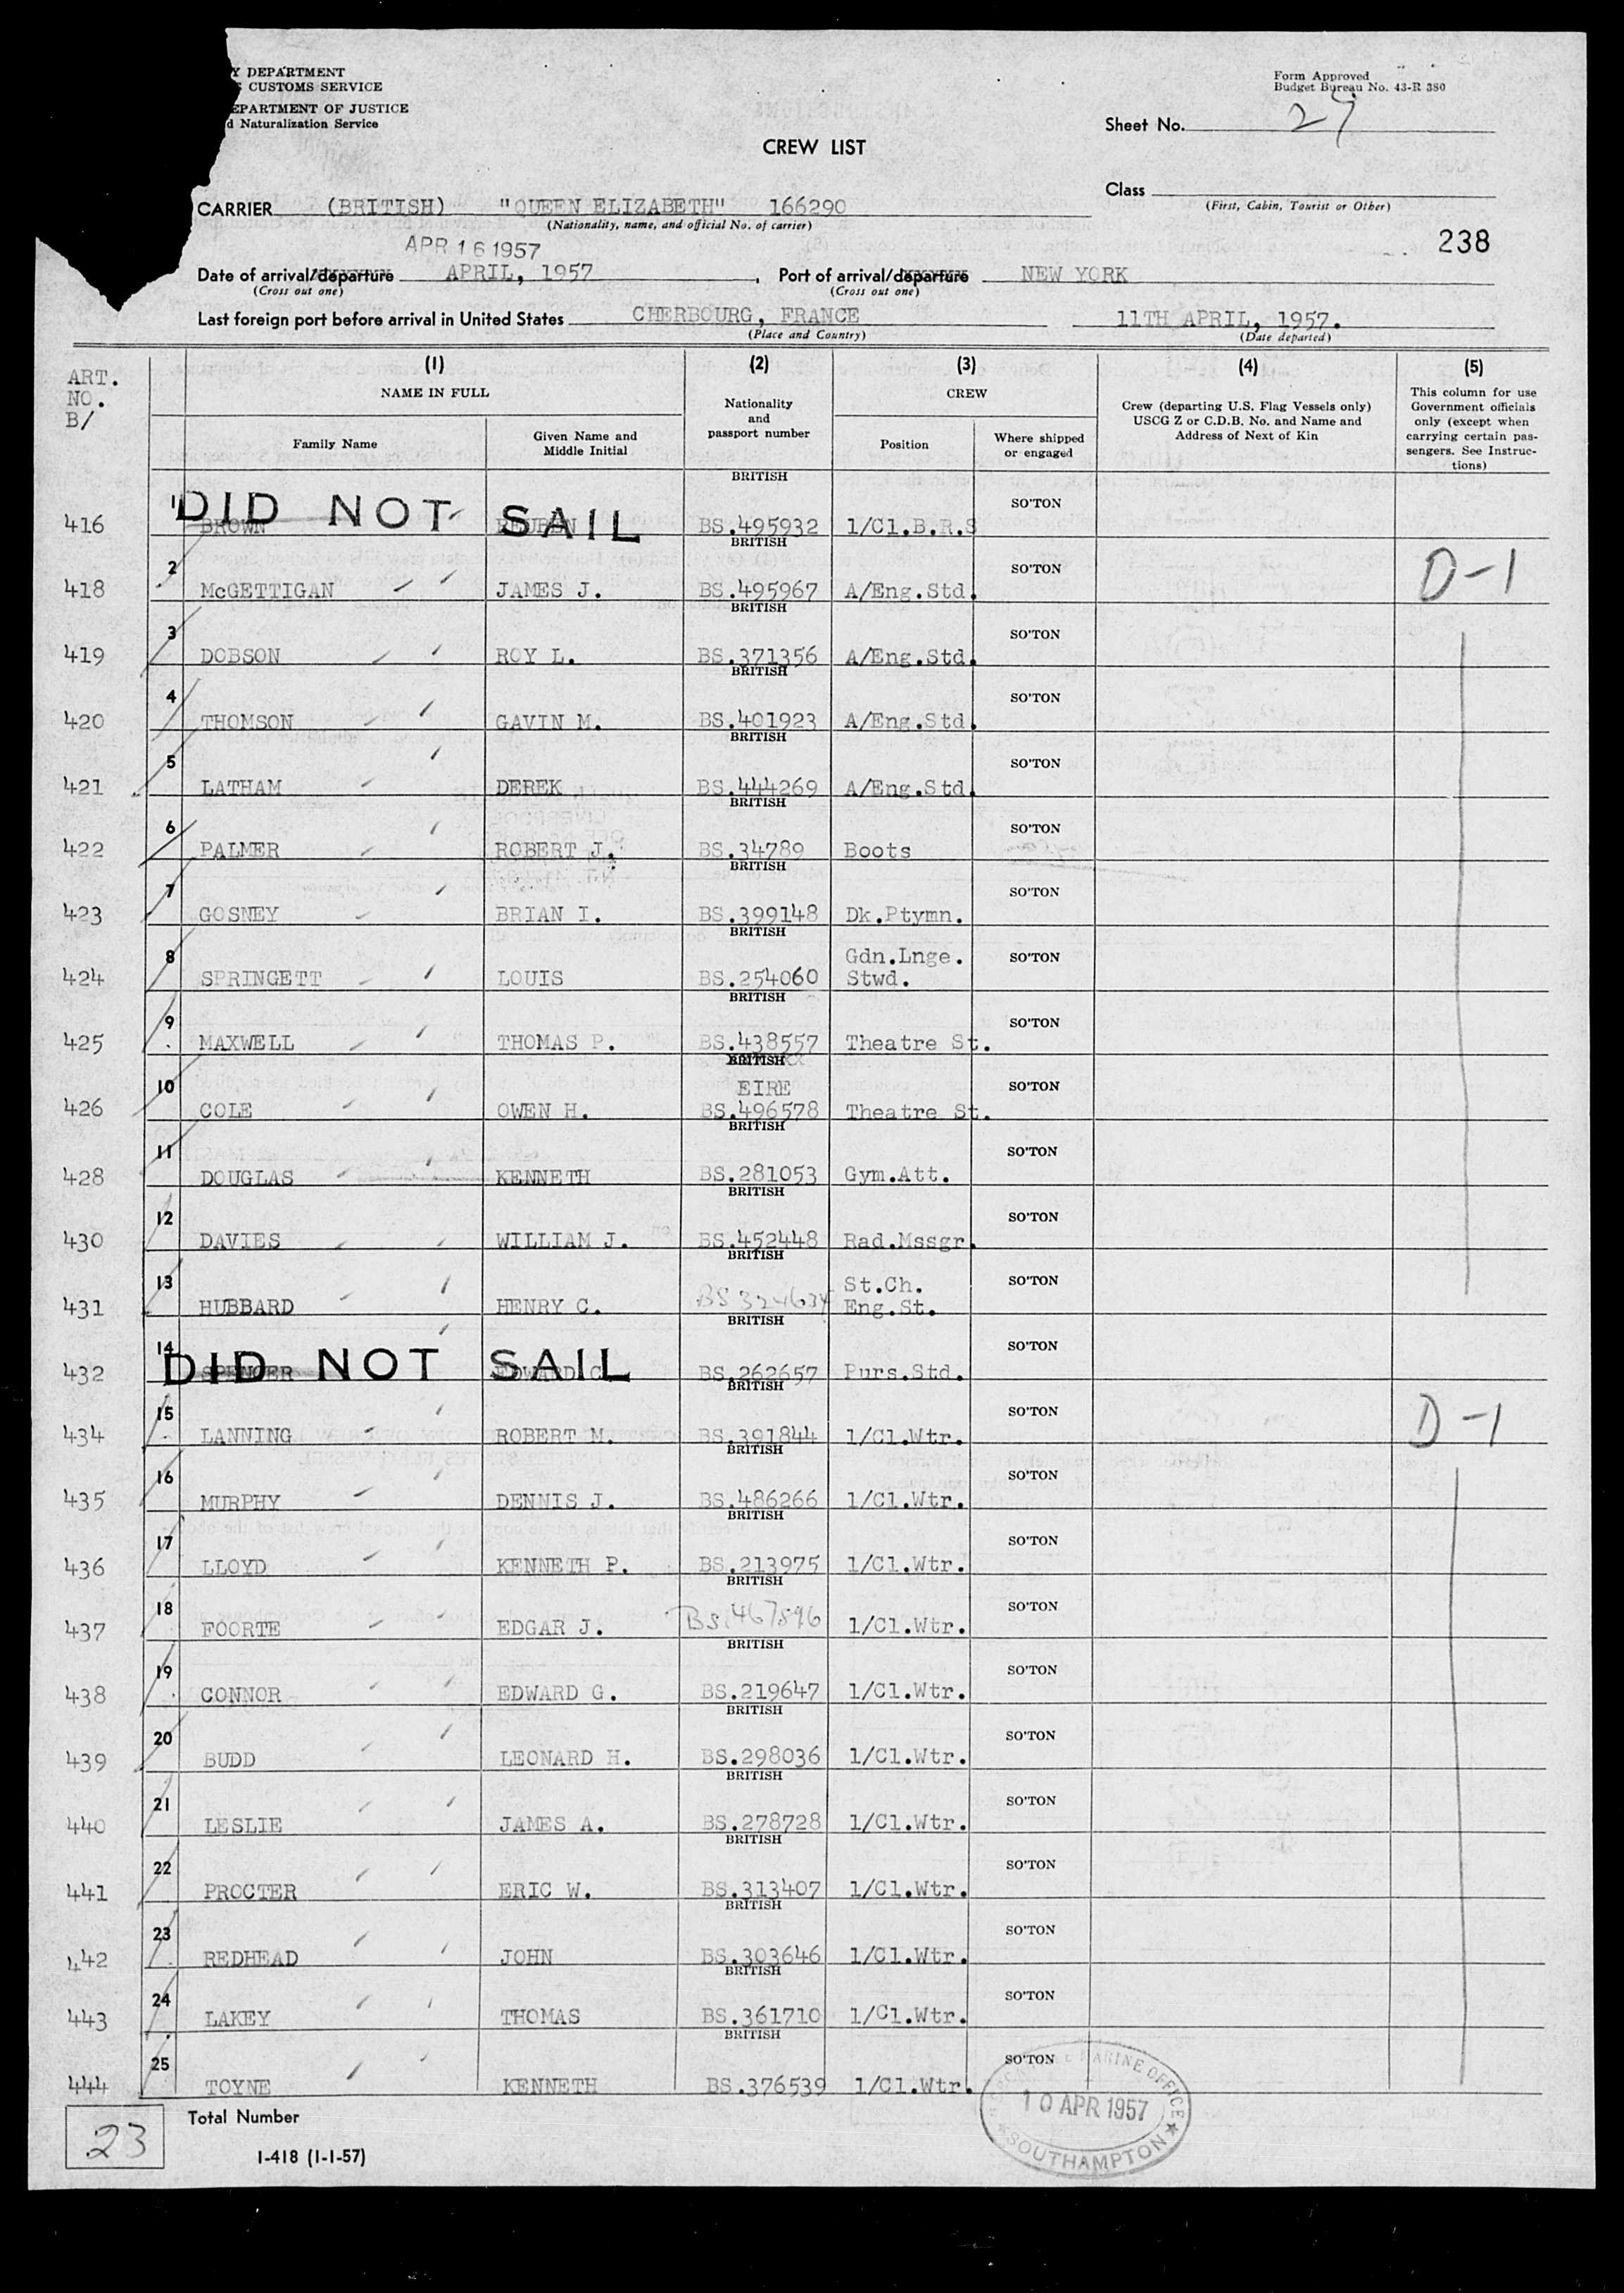 Y DEPARTMENT
CUSTOMS SERVICE
EPARTMENT OF JUSTICE
d Naturalization Service
Form Approved
Budget Bureau No. 43-R 380
Sheet No. 27
CREW LIST
Class
(First, Cabin, Tourist or Other)
CARRIER (BRITISH) "QUEEN ELIZABETH" 166290
(Nationality, name, and official No. of carrier)
APR 16 1957
238
Date of arrival/departure APRIL, 1957, Port of arrival/departure NEW YORK
(Cross out one) (Cross out one)
Last foreign port before arrival in United States CHERBOURG, FRANCE 11TH APRIL, 1957.
(Place and Country) (Date departed)
ART. NO. B/
(1) (2) (3) (4) (5)
NAME IN FULL
Family Name
Given Name and Middle Initial
Nationality and passport number
CREW
Position
Where shipped or engaged
Crew (departing U.S. Flag Vessels only)
USCG Z or C.D.B. No. and Name and
Address of Next of Kin
This column for use
Government officials
only (except when
carrying certain pas-
sengers. See Instruc-
tions)
DID NOT SAIL
416 1 BROWN REUBEN BRITISH BS.495932 1/Cl.B.R.S SO'TON
418 2 McGETTIGAN JAMES J. BRITISH BS.495967 A/Eng.Std. SO'TON D-1
419 3 DOBSON ROY L. BRITISH BS.371356 A/Eng.Std. SO'TON
420 4 THOMSON GAVIN M. BRITISH BS.401923 A/Eng.Std. SO'TON
421 5 LATHAM DEREK BRITISH BS.444269 A/Eng.Std. SO'TON
422 6 PALMER ROBERT J. BRITISH BS.34789 Boots SO'TON
423 7 GOSNEY BRIAN I. BRITISH BS.399148 Dk.Ptymn. SO'TON
424 8 SPRINGETT LOUIS BRITISH BS.254060 Gdn.Lnge. Stwd. SO'TON
425 9 MAXWELL THOMAS P. BRITISH BS.438557 Theatre St. SO'TON
426 10 COLE OWEN H. BRITISH EIRE BS.496578 Theatre St. SO'TON
428 11 DOUGLAS KENNETH BRITISH BS.281053 Gym.Att. SO'TON
430 12 DAVIES WILLIAM J. BRITISH BS.452448 Rad.Mssgr. SO'TON
431 13 HUBBARD HENRY C. BRITISH BS 324634 St.Ch. Eng.St. SO'TON
DID NOT SAIL
432 14 SPENCER EDWARD C. BRITISH BS.262657 Purs.Std. SO'TON
434 15 LANNING ROBERT M. BRITISH BS.391844 1/Cl.Wtr. SO'TON D-1
435 16 MURPHY DENNIS J. BRITISH BS.486266 1/Cl.Wtr. SO'TON
436 17 LLOYD KENNETH P. BRITISH BS.213975 1/Cl.Wtr. SO'TON
437 18 FOORTE EDGAR J. BRITISH BS.467896 1/Cl.Wtr. SO'TON
438 19 CONNOR EDWARD G. BRITISH BS.219647 1/Cl.Wtr. SO'TON
439 20 BUDD LEONARD H. BRITISH BS.298036 1/Cl.Wtr. SO'TON
440 21 LESLIE JAMES A. BRITISH BS.278728 1/Cl.Wtr. SO'TON
441 22 PROCTER ERIC W. BRITISH BS.313407 1/Cl.Wtr. SO'TON
442 23 REDHEAD JOHN BRITISH BS.303646 1/Cl.Wtr. SO'TON
443 24 LAKEY THOMAS BRITISH BS.361710 1/Cl.Wtr. SO'TON
444 25 TOYNE KENNETH BRITISH BS.376539 1/Cl.Wtr. SO'TON
23
Total Number
I-418 (1-1-57)
MARINE OFFICE
10 APR 1957
SOUTHAMPTON